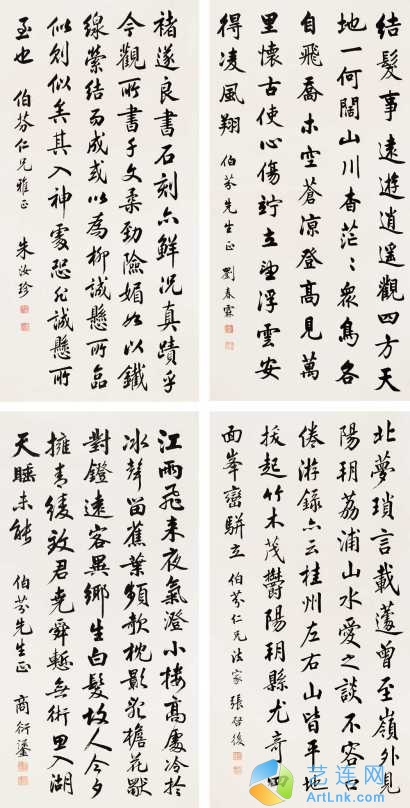 結髮事遠遊逍遙觀四方天
地一何闊山川杳茫〻眾鳥各
自飛喬木空蒼涼登高見萬
里懷古使心傷竚立望浮雲安
得凌風翔 伯芬先生正 劉春霖
褚遂良書石刻亦鮮況真蹟乎
今觀所書千文柔勁險媚如以鐵
線縈結而成或以為柳誠懸所臨
似則似矣其入神處恐非誠懸所
至也 伯芬仁兄雅正 朱汝珍
北夢瑣言載蘧曾至嶺外見
陽朔荔浦山水愛之談不容口
倦游錄亦云桂州左右山皆平地
拔起竹木茂鬱陽朔縣尤奇四
面峯巒駢立 伯芬仁兄法家 張啓後
江雨飛来夜氣澄小樓高處冷於
冰聲留蕉葉頻欹枕影亂檐花
對鐙遠客異鄉生白髮故人今夕
擁青綾致君堯舜慙無術思入湖
天睡未能 伯芬先生正 商衍鎏
艺连网
ArtLink.com